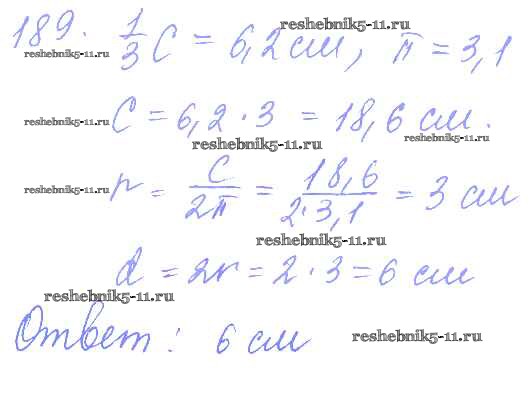 reshebnik5-11.ru
189. 1/3 C = 6,2 см, π = 3,1
reshebnik5-11.ru
reshebnik5-11.ru C = 6,2 · 3 = 18,6 см.
reshebnik5-11.ru reshebnik5-11.ru
reshebnik5-11.ru r = C/2π = 18,6/2·3,1 = 3 см
reshebnik5-11.ru
d = 2r = 2 · 3 = 6 см
reshebnik5-11.ru
Ответ: 6 см reshebnik5-11.ru